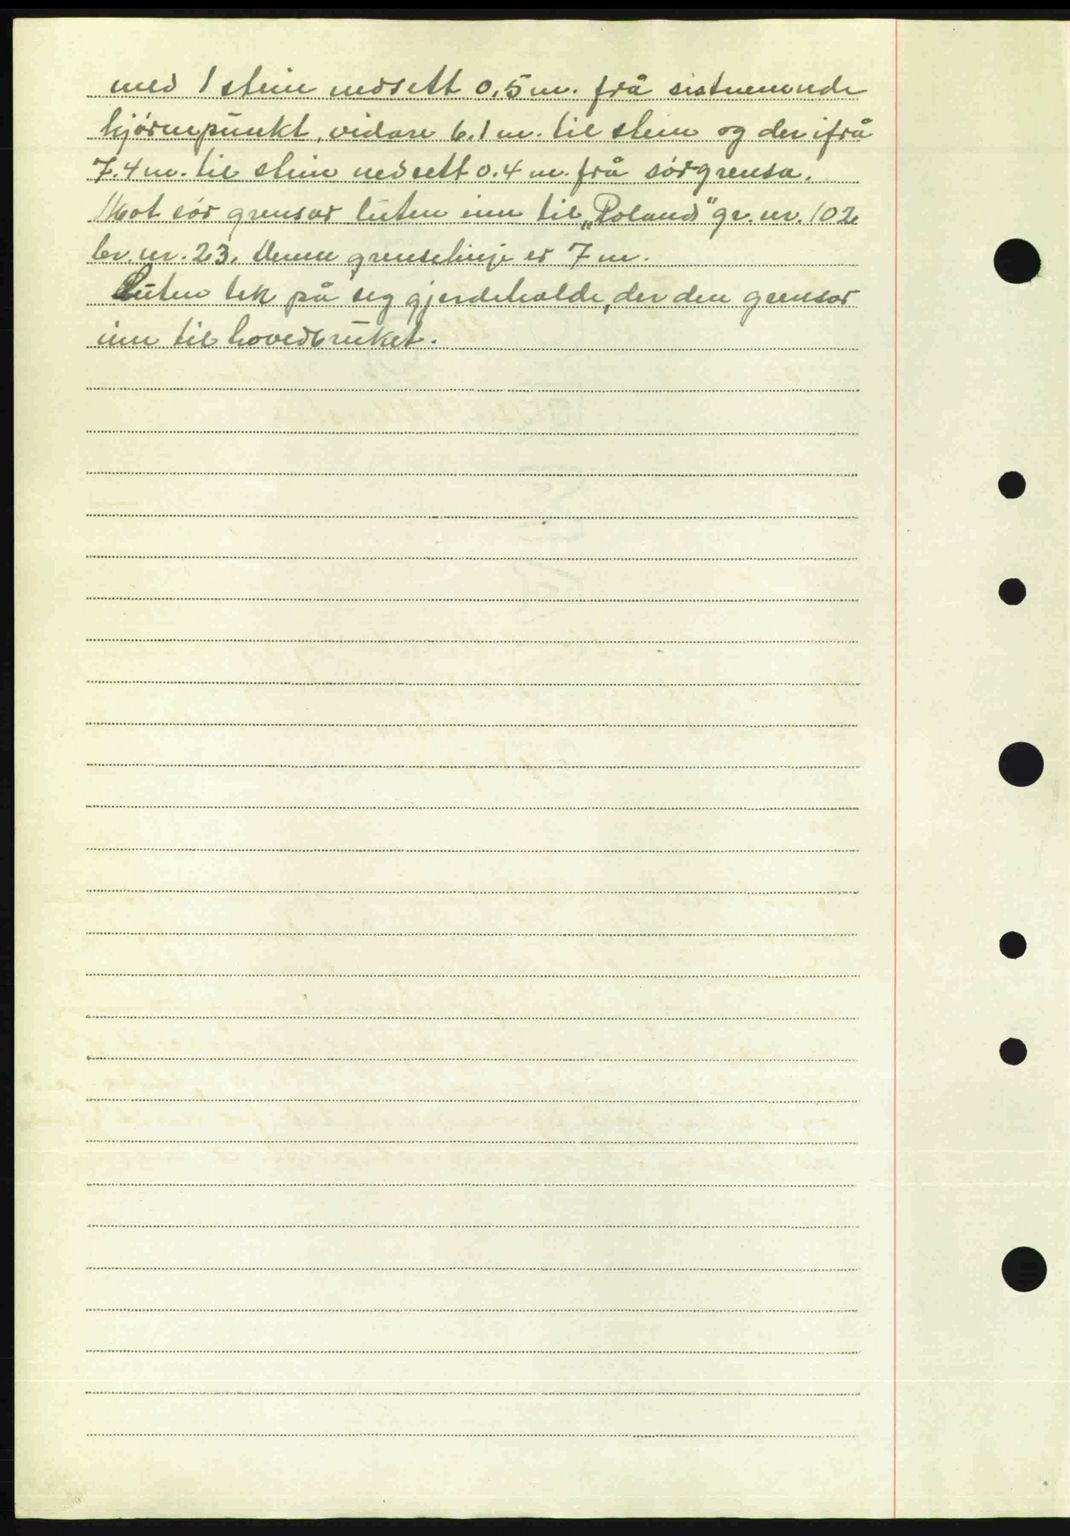 med 1 stein nedsett 0.5 m. frå sistnemnde
hjørnepunkt, vidare 6.1 m. til stein og der ifrå
7.4 m. til stein nedsett 0.4 m. frå sørgrensa.
Mot sør grensar luten inn til „Poland" gr. nr. 102
br. nr. 23. Denne grenselinje er 7 m.
Luten tek på seg gjerdehalde, der den grensar
inn til hovedbruket.